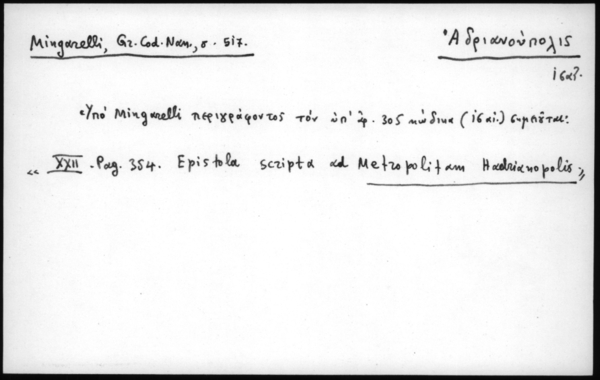 Mingarelli, Gr. Cod. Nan., σ. 517.
Ἀδριανούπολις
ις αἰ.
Ὑπό Mingarelli περιγράφοντος τόν ὑπ' ἀρ. 305 κώδικα (ις αἰ.)
« XXII. Pag. 354. Epistola scripta ad Metropolitam Hadrianopolis »